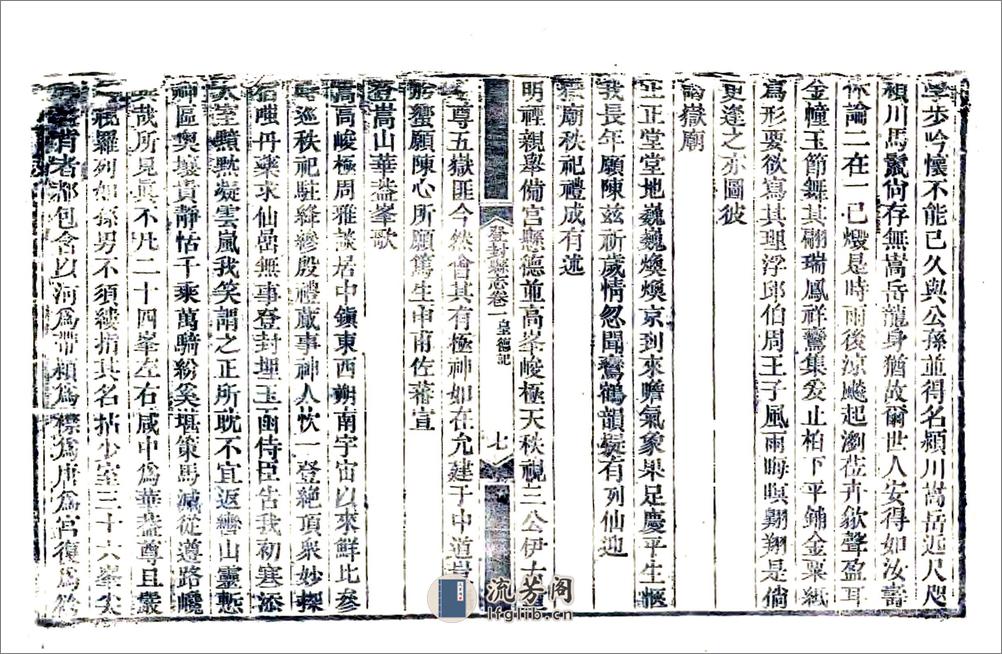 學步吟懷不能已久與公孫並得名潁川嵩岳近尺咫
潁川馬鬣尚存無嵩岳龍身猶故爾世人安得如汝壽
休論二在一已燬是時雨後涼飈起瀏莅卉歙聲盈耳
金幢玉節舞其翮瑞鳳祥鸞集爰止柏下平鋪金粟紙
爲形要欲寫其理浮邱伯周王子風雨晦暝翱翔是倘
更逢之亦圖彼
謁嶽廟
正正堂堂地巍巍煥煥京到來瞻氣象果足慶平生愜
我長年願陳茲祈歲情忽聞鸞鶴韻擬有列仙迎
嶽廟秩祀禮成有述
明禋親舉備宮懸德並高峯峻極天秩視三公伊古
尊五嶽匪今然會其有極神如在允建于中道豈
肸蠁願陳心所願篤生申甫佐蕃宣
登封縣志卷一 皇德記 七
登嵩山華葢峯歌
嵩高峻極周雅談居中鎭東西朔南宇宙以來鮮比參
巡秩祀駐絳驂殷禮蕆事神人忺一登絶頂衆妙探
嗤丹藥求仙嵒無事登封埋玉函侍臣告我初寒添
大室黯黮凝雲嵐我笑謂之正所耽不宜返轡山靈慙
神區奧壤貴靜恬千乘萬騎紛奚堪策馬減從遵路巉
哉所見眞不凡二十四峯左右咸中爲華葢尊且嚴
羅列如孫男不須縷指其名拈少室三十六峯尖
肖者都包含以河爲帶潁爲襟爲唐爲宮復爲
流芳閣
lfglib.cn